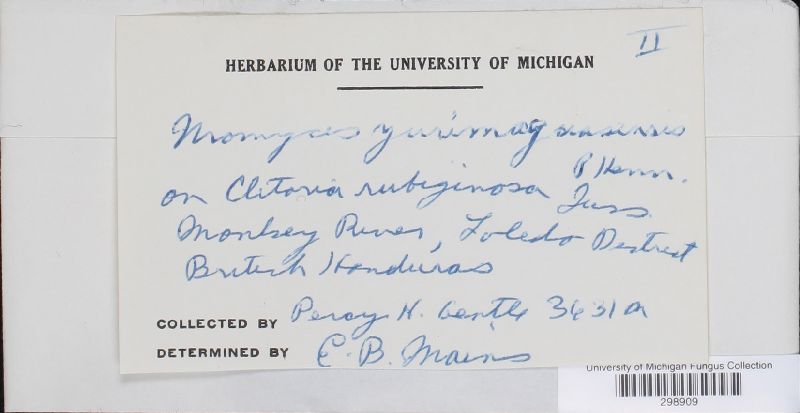 II
HERBARIUM OF THE UNIVERSITY OF MICHIGAN
Uromyces yurimaguasensis
P. Henn.
on Clitoria rubiginosa Juss.
Monkey River, Toledo District
British Honduras
COLLECTED BY Percy H. Gentle 3631a
DETERMINED BY E. B. Mains
University of Michigan Fungus Collection
298909